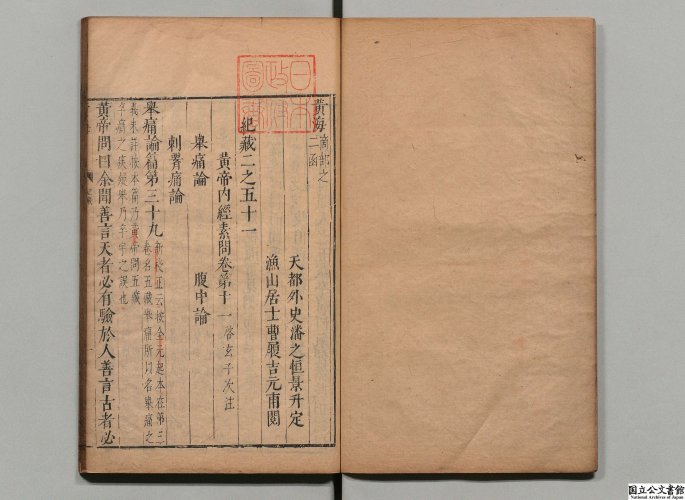 黄海 商部之
二函
天都外史潘之恒景升定
漁山居士曹履吉元甫閲
紀藏二之五十一
黄帝内經素問卷第十一 啓玄子次注
舉痛論 腹中論
刺腰痛論
舉痛論篇第三十九 新校正云按全元起本在第三
卷名五藏舉痛所以名舉痛之
義未詳按本篇乃黄帝問五藏
卒痛之疾疑舉乃卒字之誤也
黄帝問曰余聞善言天者必有驗於人善言古者必
日本
政府
圖書
国立公文書館
National Archives of Japan